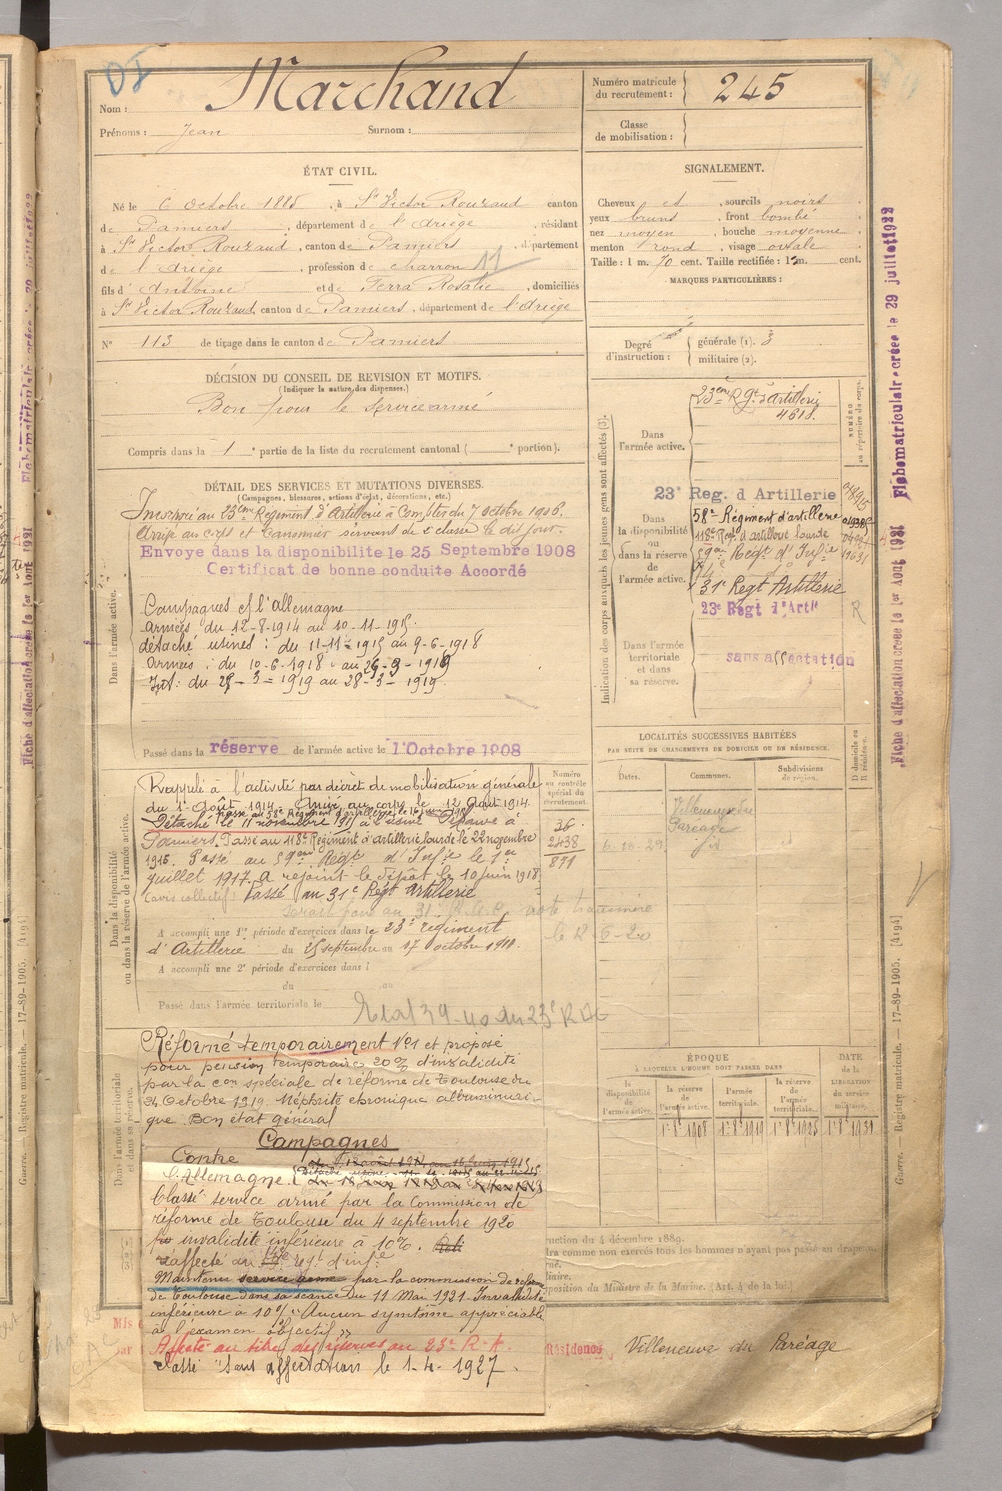 Nom : Marchand
Prénoms : Jean Surnom :
Numéro matricule du recrutement : 245
Classe de mobilisation :
ÉTAT CIVIL.
Né le 6 Octobre 1885, à St Victor Rouzaud canton
de Pamiers, département de l'Ariège, résidant
à St Victor Rouzaud, canton de Pamiers, département
de l'Ariège, profession de charron 11
fils d'Antoine et de Ferra Rosalie, domiciliés
à St Victor Rouzaud, canton de Pamiers, département de l'Ariège
N° 113 de tirage dans le canton de Pamiers
SIGNALEMENT.
Cheveux et, sourcils noirs
yeux bruns, front bombé
nez moyen, bouche moyenne
menton rond, visage ovale
Taille : 1 m. 70 cent. Taille rectifiée : 1 m. cent.
MARQUES PARTICULIÈRES :
Degré d'instruction : générale (1). 3
militaire (2).
DÉCISION DU CONSEIL DE REVISION ET MOTIFS.
(Indiquer la nature des dispenses.)
Bon pour le service armé
Compris dans la 1e partie de la liste du recrutement cantonal ( e portion).
DÉTAIL DES SERVICES ET MUTATIONS DIVERSES.
(Campagnes, blessures, actions d'éclat, décorations, etc.)
Dans l'armée active.
Inscorporé au 23eme Régiment d'Artillerie à Compter du 7 octobre 1906.
Arrivé au corps et Canonnier servant de 2e classe le dit jour.
Envoyé dans la disponibilite le 25 Septembre 1908
Certificat de bonne conduite Accordé
Campagnes c/ l'allemagne
armées du 12-8-1914 au 10-11-1915.
détaché usines : du 11-11-1915 au 9-6-1918
Armées : du 10-6-1918 au 26-9-1919
Int : du 27-3-1919 au 28-3-1919.
Passé dans la réserve de l'armée active le 1 Octobre 1908
Indication des corps auxquels les jeunes gens sont affectés (3).
NUMÉRO au répertoire du corps.
Dans l'armée active.
23eme Rgt d'artillerie
4618.
Dans la disponibilité ou dans la réserve de l'armée active.
23e Reg. d Artillerie
58e Régiment d'artillerie
118e Régt d'artillerie lourde
59e Régt d'Infie
31e Regt Artillerie
23e Régt d'Artie
R
Dans l'armée territoriale et dans sa réserve.
sans affectation
Dans la disponibilité ou dans la réserve de l'armée active.
Rappelé à l'activité par décret de mobilisation générale
du 1er Août 1914. Arrivé au corps le 12 Août 1914.
Passé au 58e Régiment d'artillerie le 16
Détaché le 11 novembre 1915 à l'usine à
Pamiers. Passé au 118e Régiment d'artillerie lourde le 22 novembre
1916. Passé au 59eme Régt d'Infie le 1er
Juillet 1917. A rejoint le dépôt le 10 juin 1918
(avis collectif) Passé au 31e Régt Artillerie
A accompli une 1re période d'exercices dans le 23e régiment
d'Artillerie du 25 septembre au 17 octobre 1911.
A accompli une 2e période d'exercices dans l
du au
Passé dans l'armée territoriale le
Numéro au contrôle spécial du recrutement.
36
2438
871
LOCALITÉS SUCCESSIVES HABITÉES
PAR SUITE DE CHANGEMENTS DE DOMICILE OU DE RÉSIDENCE.
Dates. Communes. Subdivisions de région. D domicile ou R résidence.
Villeneuve du Paréage
ÉPOQUE
À LAQUELLE L'HOMME DOIT PASSER DANS
la disponibilité de l'armée active. la réserve de l'armée active. l'armée territoriale. la réserve de l'armée territoriale.
DATE de la LIBÉRATION du service militaire.
Dans l'armée territoriale et dans sa réserve.
Réformé temporairement N°1 et proposé
pour pension temporaire 20% d'invalidité
par la con spéciale de réforme de Toulouse du
24 Octobre 1919. Néphrite chronique albuminuri-
que Bon état général
Campagnes
Contre
l'Allemagne
Classé service armé par la Commission de
réforme de Toulouse du 4 septembre 1920
invalidité inférieure à 10%.
réaffecté au 14e regt d'inf.
Maintenu service armé par la commission de réforme
de Toulouse dans sa séance du 11 Mai 1921. Invalidité
inférieure à 10% "Aucun symtôme appréciable
à l'examen objectif"
Affecté au titre des réserves au 23e R.A.
Classé "Sans affectation le 1-4-1927
ruction du 4 décembre 1889.
dra comme non exercés tous les hommes n'ayant pas passé au drapeau
position du Ministre de la Marine. (Art. 4 de la loi.)
Résidence Villeneuve du Paréage
Guerre. — Registre matricule. — 17-89-1905. [4194]
Fiche matriculaire créée le 29 juillet 1922
Fiche d'affectation créée le 1er Août 1921